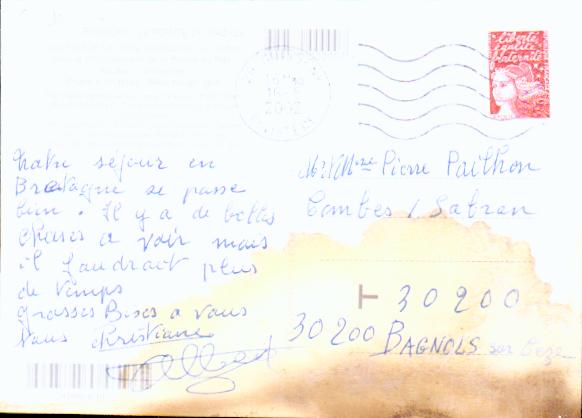 liberté
égalité
fraternité
2002
Notre séjour en
Bretagne se passe
bien. Il y a de belles
choses a voir mais
il faudrait plus
de temps
grosses Bises a vous
tous Christiane
Albert
Mr et Mme Pierre Pailhon
Combes / Sabran
T 30200
30200 BAGNOLS sur Ceze